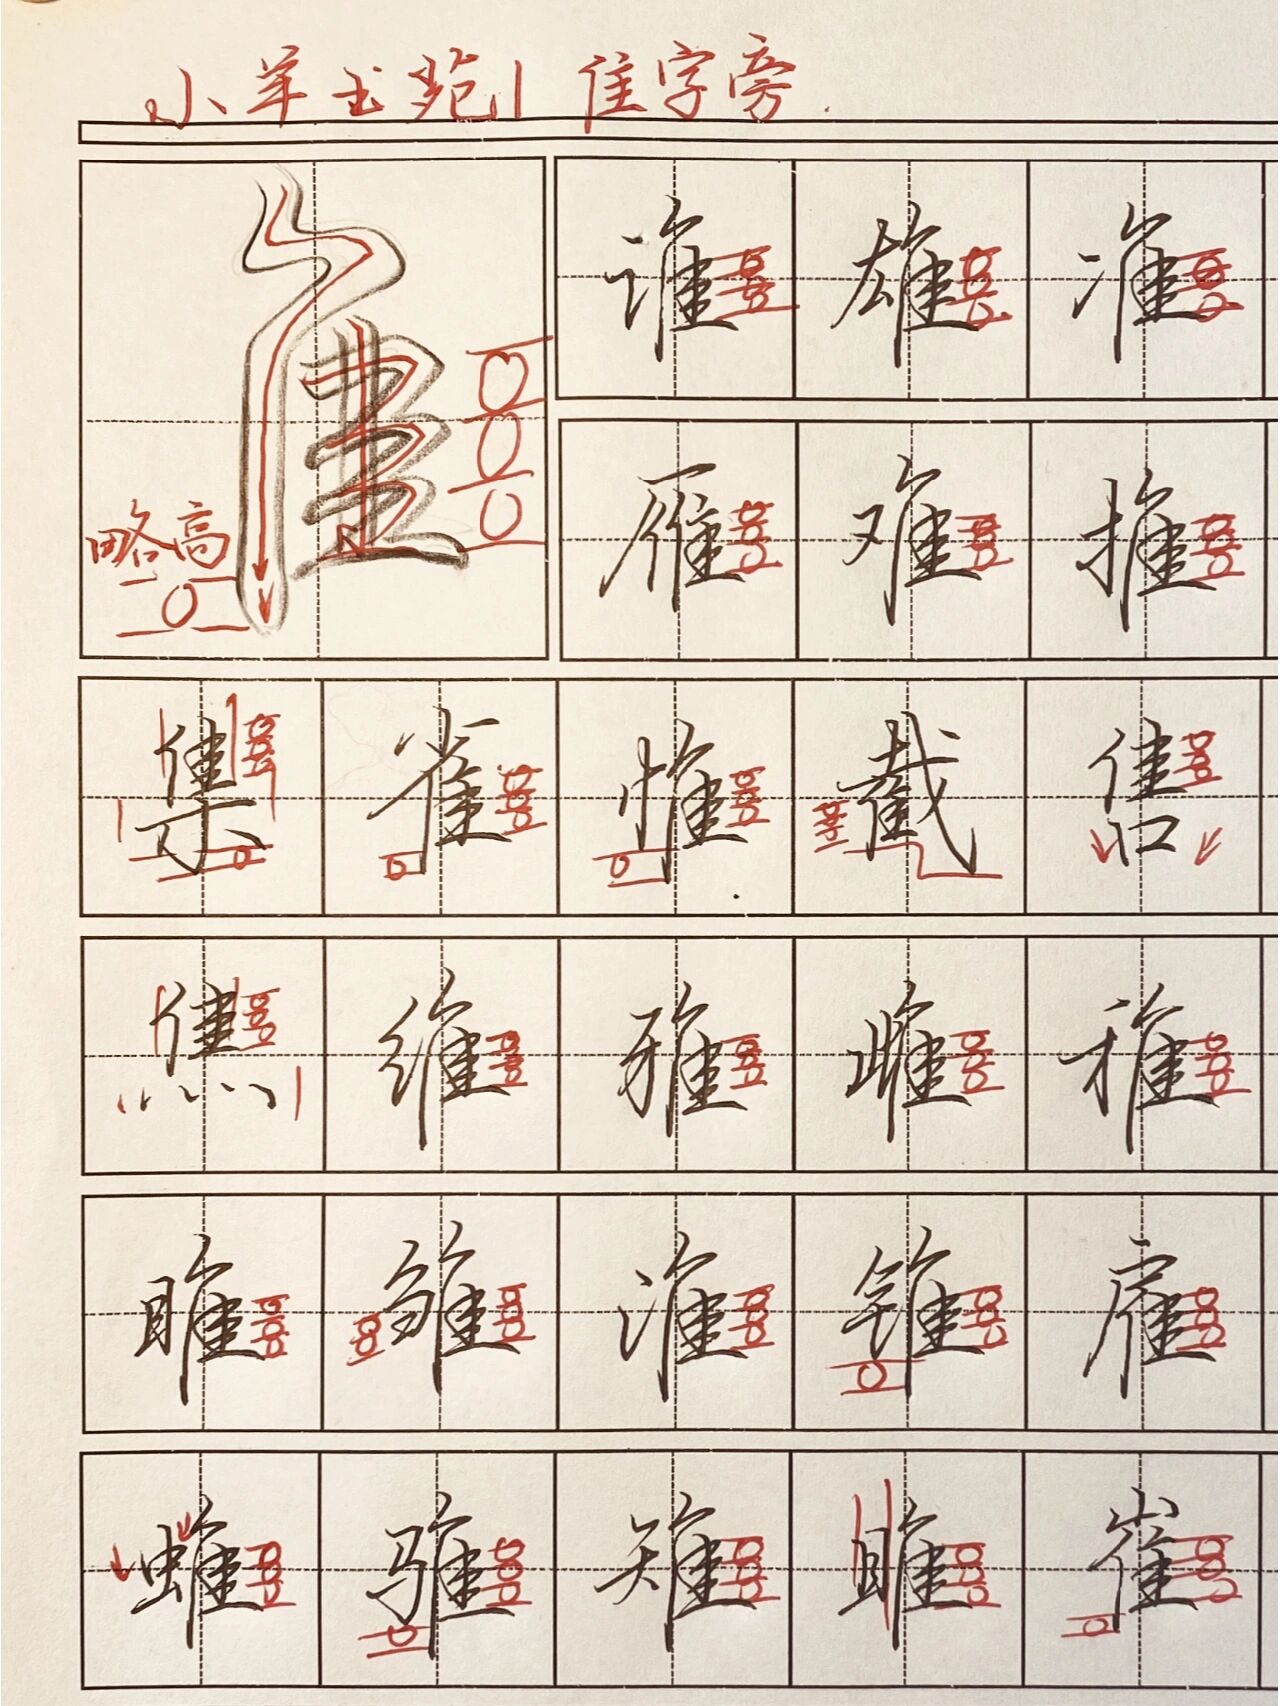 小羊玉苑| 隹字旁.
隹 谁 雄 准
略高
雁 难 推
集 雀 惟 截 售
焦 维 雅 雌 稚
睢 雏 淮 锥 雇
蜼 骓 雉 雎 崔